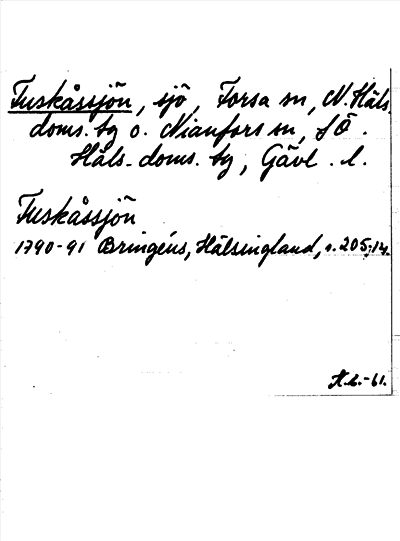 Tuskåssjön, sjö, Forsa sn, N. Häls.
doms. bg o. Nianfors sn, SÖ.
Häls. doms. bg, Gävl. l.
Tuskåssjön
1790-91 Bringéus, Hälsingland, s. 205; 14.
-61.